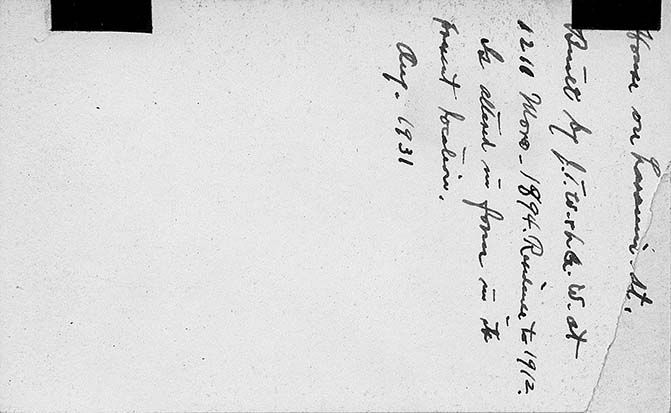 House on Laramie. St.
Built by J.T.W. + L.A.W. at
1210 Moro - 1894. Residence to 1912.
Is altered in form in its
present location.
Aug. 1931